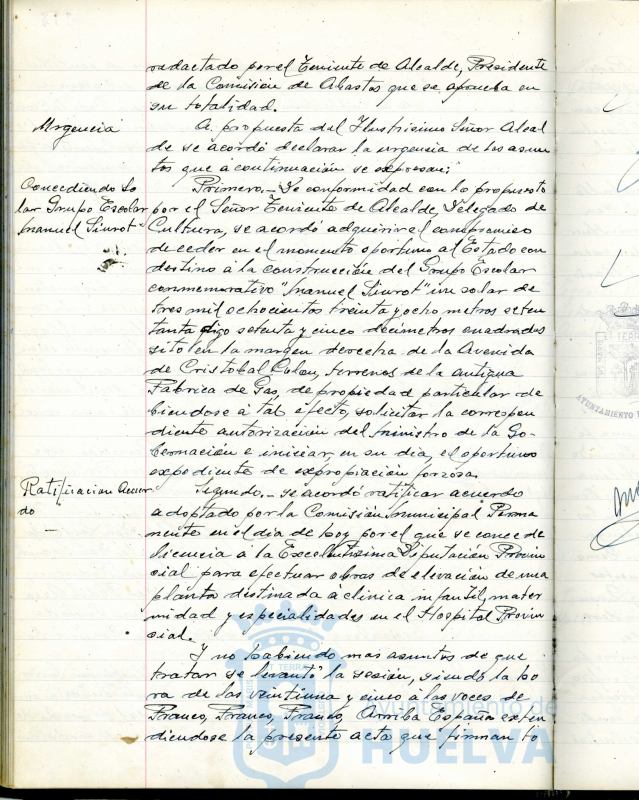 redactado por el Teniente de Alcalde, Presidente
de la Comisión de Abastos que se aprueba en
su totalidad.
Urgencia
A propuesta del Ilustrisimo Señor Alcal
de se acordó declarar la urgencia de los asun
tos que á continuación se expresan:
Concediendo So
lar Grupo Escolar
Manuel Siurot"
Primero.- De conformidad con lo propuesto
por el Señor Teniente de Alcalde, Delegado de
Cultura, se acordó adquirir el compromiso
de ceder en el momento oportuno al Estado con
destino á la construcción del Grupo Escolar
conmemorativo "Manuel Siurot" un solar de
tres mil ochocientos treinta y ocho metros seten
tanta digo setenta y cinco decímetros cuadrados
sito en la margen derecha de la Avenida
de Cristobal Colon, terrenos de la antigua
Fabrica de Gas, de propiedad particular de
biendose á tal efecto, solicitar la correspon
diente autorización del Ministro de la Go-
bernación e iniciar, en su dia, el oportuno
expediente de expropiación forzosa.
Ratificacion Acuer
do
Segundo.- se acordó ratificar acuerdo
adoptado por la Comisión Municipal Perma
nente en el dia de hoy por el que se concede
licencia á la Excelentisima Diputación Provin
cial para efectuar obras de elevación de una
planta destinada á clinica infantil, mater
nidad y especialidades en el Hospital Provin
cial.
Y no habiendo mas asuntos de que
tratar se levantó la sesión, siendo la ho
ra de las veintiuna y cinco a las voces de
Franco, Franco, Franco, Arriba España exten
diendose la presente acta que firman to
Ayuntamiento de
HUELVA
AYUNTAMIENTO